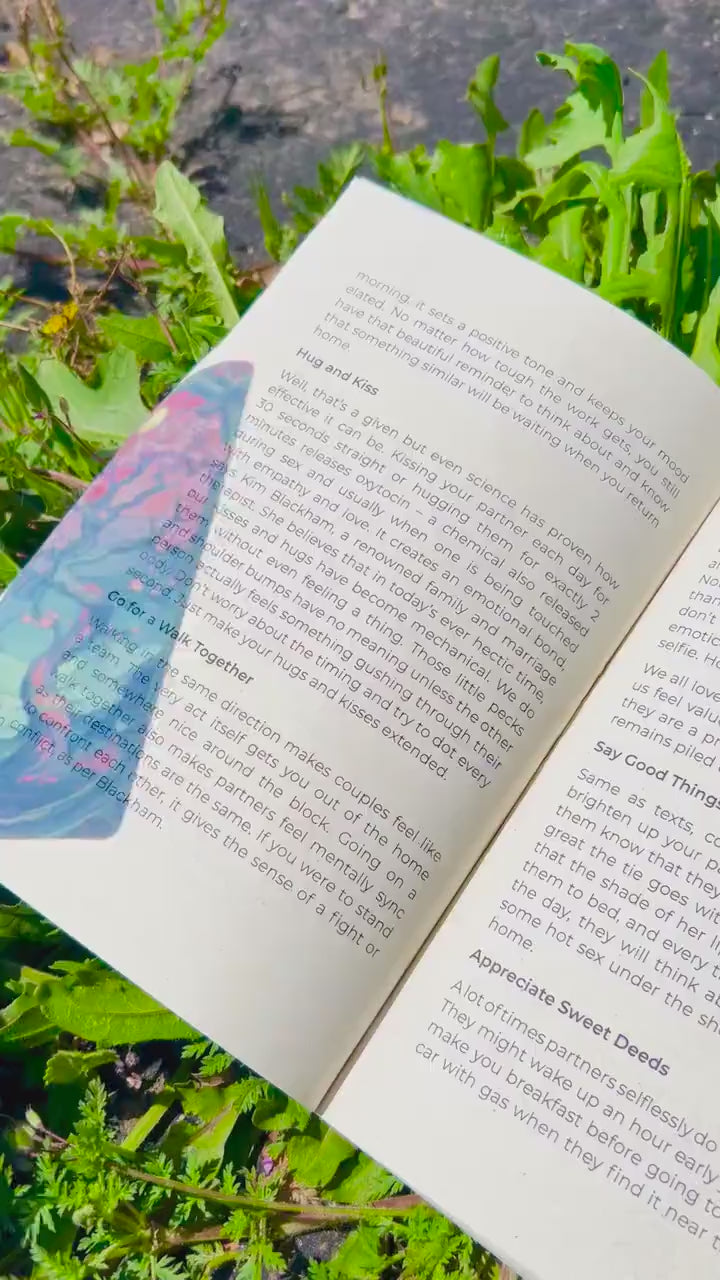 morning, it sets a positive tone and keeps your mood
elated. No matter how tough the work gets, you still
have that beautiful reminder to think about and know
that something similar will be waiting when you return
home.
Hug and Kiss
Well, that's a given but even science has proven how
effective it can be. Kissing your partner each day for
30 seconds straight or hugging them for exactly 2
minutes releases oxytocin – a chemical also released
during sex and usually when one is being touched
with empathy and love. It creates an emotional bond,
says Kim Blackham, a renowned family and marriage
therapist. She believes that in today's ever hectic time,
our kisses and hugs have become mechanical. We do
them without even feeling a thing. Those little pecks
and shoulder bumps have no meaning unless the other
person actually feels something gushing through their
body. Don't worry about the timing and try to dot every
second. Just make your hugs and kisses extended.
Go for a Walk Together
Walking in the same direction makes couples feel like
a team. The very act itself gets you out of the home
and somewhere nice around the block. Going on a
walk together also makes partners feel mentally sync
as their destinations are the same. If you were to stand
to confront each other, it gives the sense of a fight or
conflict, as per Blackham.
No
than
don't
emotic
selfie. He
We all love
us feel valu
they are a pr
remains piled
Say Good Things
Same as texts, co
brighten up your p
them know that they
great the tie goes wit
that the shade of her li
them to bed, and every t
the day, they will think a
some hot sex under the sh
home.
Appreciate Sweet Deeds
A lot of times partners selflessly do
They might wake up an hour early
make you breakfast before going to
car with gas when they find it near t